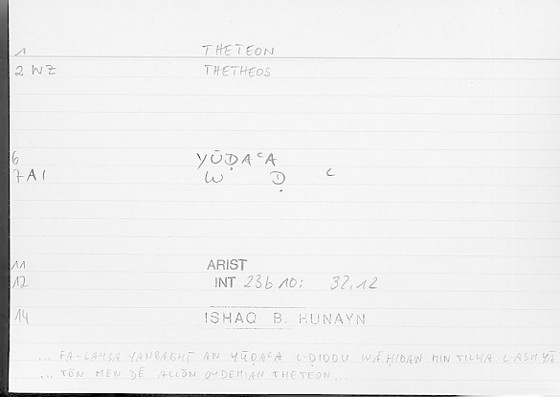 1 THETEON
2 WZ THETHEOS
6 YŪḌAᶜA
7 AI W Ḍ ᶜ
11 ARIST
12 INT 23b10: 32.12
14 ISHAQ B. HUNAYN
... FA-LAYSA YANBAGHĪ AN YŪḌAᶜA L-ḌIDDU WĀḤIDAN MIN TILKA L-ASHYĀ
... TŌN MEN DĒ ALLŌN OYDEMIAN THETEON...